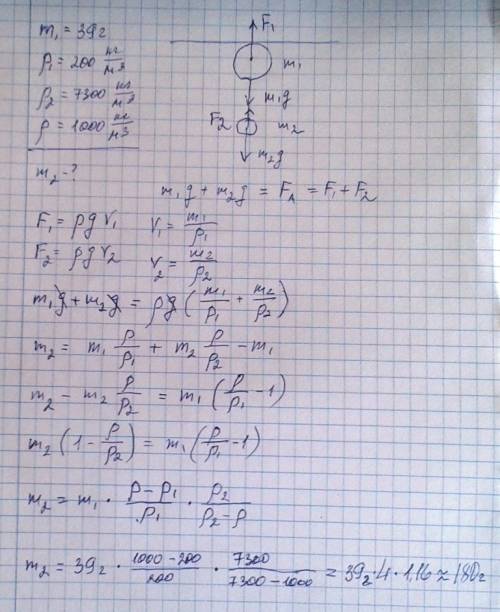 m₁ = 39г
ρ₁ = 200 кг/м³
ρ₂ = 7300 кг/м³
ρ = 1000 кг/м³
m₂ - ?
F₁
m₁
m₁g
F₂
m₂
m₂g
m₁g + m₂g = F_A = F₁ + F₂
F₁ = ρgV₁ V₁ = m₁/ρ₁
F₂ = ρgV₂ V₂ = m₂/ρ₂
m₁g + m₂g = ρg (m₁/ρ₁ + m₂/ρ₂)
m₂ = m₁ ρ/ρ₁ + m₂ ρ/ρ₂ - m₁
m₂ - m₂ ρ/ρ₂ = m₁ (ρ/ρ₁ - 1)
m₂ (1 - ρ/ρ₂) = m₁ (ρ/ρ₁ - 1)
m₂ = m₁ · (ρ - ρ₁)/ρ₁ · ρ₂/(ρ₂ - ρ)
m₂ = 39г · (1000 - 200)/200 · 7300/(7300 - 1000) = 39г · 4 · 1,16 ≈ 180г